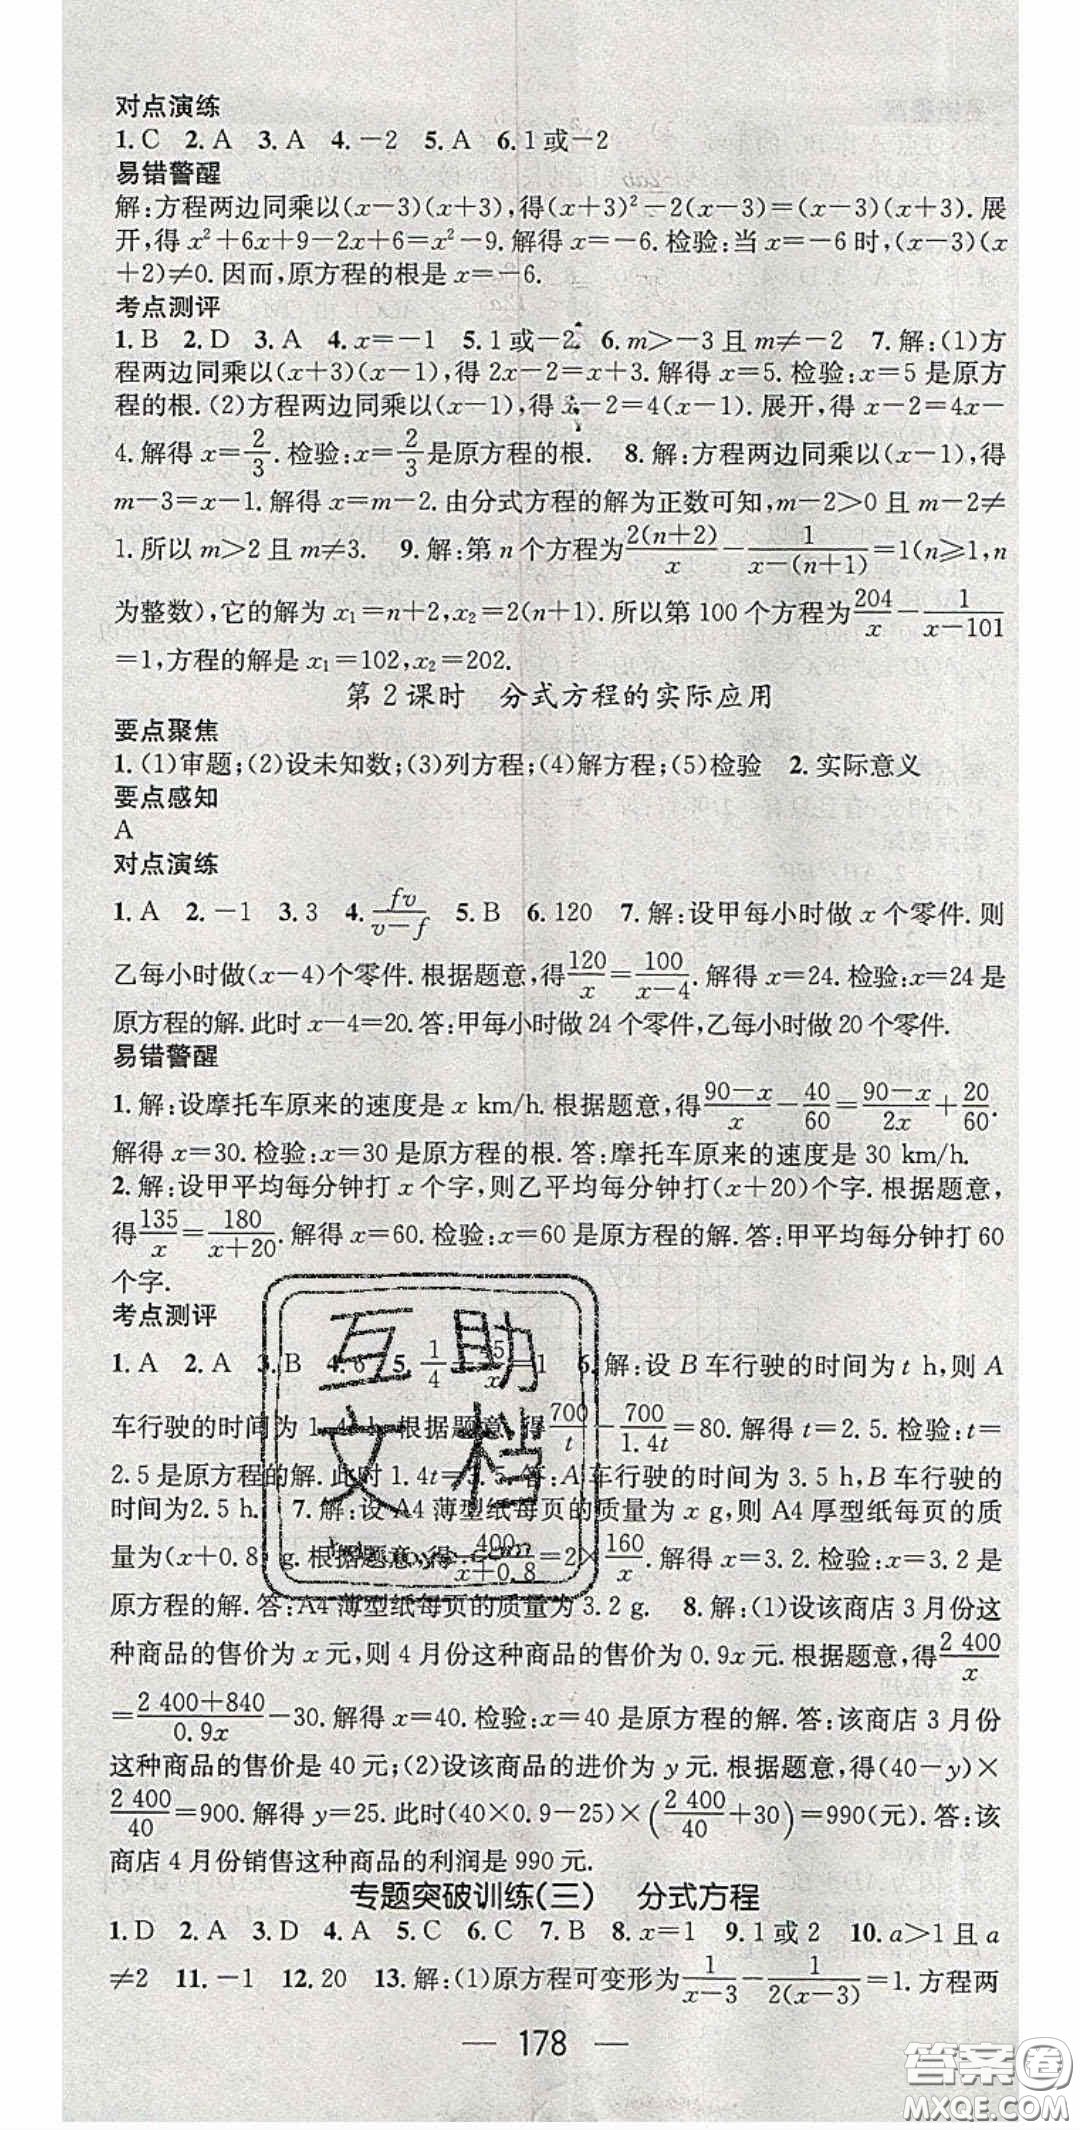 对点演练
1.C 2.A 3.A 4.－2 5.A 6.1或－2
易错警醒
解:方程两边同乘以(x－3)(x＋3),得(x＋3)²－2(x－3)＝(x－3)(x＋3).展
开,得 x²＋6x＋9－2x＋6＝x²－9.解得 x＝－6.检验:当 x＝－6 时,(x－3)(x
＋2)≠0.因而,原方程的根是 x＝－6.
考点测评
1.B 2.D 3.A 4.x＝－1 5.1或－2 6.m＞－3 且 m≠－2 7.解:(1)方
程两边同乘以(x＋3)(x－1),得 2x－2＝x＋3.解得 x＝5.检验:x＝5 是原方
程的根.(2)方程两边同乘以(x－1),得 x－2＝4(x－1).展开,得 x－2＝4x－
4.解得 x＝2/3.检验:x＝2/3是原方程的根. 8.解:方程两边同乘以(x－1),得
m－3＝x－1.解得 x＝m－2.由分式方程的解为正数可知,m－2＞0 且 m－2≠
1.所以 m＞2 且 m≠3. 9.解:第 n 个方程为2(n＋2)/x－1/(x－(n＋1))＝1(n≥1,n
为整数),它的解为 x₁＝n＋2,x₂＝2(n＋1).所以第 100 个方程为204/x－1/(x－101)
＝1,方程的解是 x₁＝102,x₂＝202.
第 2 课时 分式方程的实际应用
要点聚焦
1.(1)审题;(2)设未知数;(3)列方程;(4)解方程;(5)检验 2.实际意义
要点感知
A
对点演练
1.A 2.－1 3.3 4.fv/(v－f) 5.B 6.120 7.解:设甲每小时做 x 个零件.则
乙每小时做(x－4)个零件.根据题意,得120/x＝100/(x－4).解得 x＝24.检验:x＝24 是
原方程的解.此时 x－4＝20.答:甲每小时做 24 个零件,乙每小时做 20 个零件.
易错警醒
1.解:设摩托车原来的速度是 x km/h.根据题意,得(90－x)/x－40/60＝(90－x)/2x＋20/60.
解得 x＝30.检验:x＝30 是原方程的根.答:摩托车原来的速度是 30 km/h.
2.解:设甲平均每分钟打 x 个字,则乙平均每分钟打(x＋20)个字.根据题意,
得135/x＝180/(x＋20).解得 x＝60.检验:x＝60 是原方程的解.答:甲平均每分钟打 60
个字.
考点测评
1.A 2.A 3.B 4.6 5.1/4 45/x＝1 6.解:设 B 车行驶的时间为 t h,则 A
车行驶的时间为 1.4t h.根据题意,得700/t－700/1.4t＝80.解得 t＝2.5.检验:t＝
2.5 是原方程的解.此时 1.4t＝3.5.答:A 车行驶的时间为 3.5 h,B 车行驶的
时间为2.5 h. 7.解:设 A4 薄型纸每页的质量为 x g,则 A4 厚型纸每页的质
量为(x＋0.8) g.根据题意,得400/(x＋0.8)＝2×160/x.解得 x＝3.2.检验:x＝3.2 是
原方程的解.答:A4 薄型纸每页的质量为 3.2 g. 8.解:(1)设该商店 3 月份这
种商品的售价为 x 元,则 4 月份这种商品的售价为 0.9x 元.根据题意,得2 400/x
＝(2 400＋840)/0.9x－30.解得 x＝40.检验:x＝40 是原方程的解.答:该商店 3 月份
这种商品的售价是 40 元;(2)设该商品的进价为 y 元.根据题意,得(40－y)×
2 400/40＝900.解得 y＝25.此时(40×0.9－25)×(2 400/40＋30)＝990(元).答:该
商店 4 月份销售这种商品的利润是 990 元.
专题突破训练(三) 分式方程
1.D 2.A 3.D 4.A 5.C 6.C 7.B 8.x＝1 9.1或 2 10.a＞1 且 a
≠2 11.－1 12.20 13.解:(1)原方程可变形为1/(x－3)－1/(2(x－3))＝1.方程两
— 178 —
互助
文档
答案圈
MXQE.COM